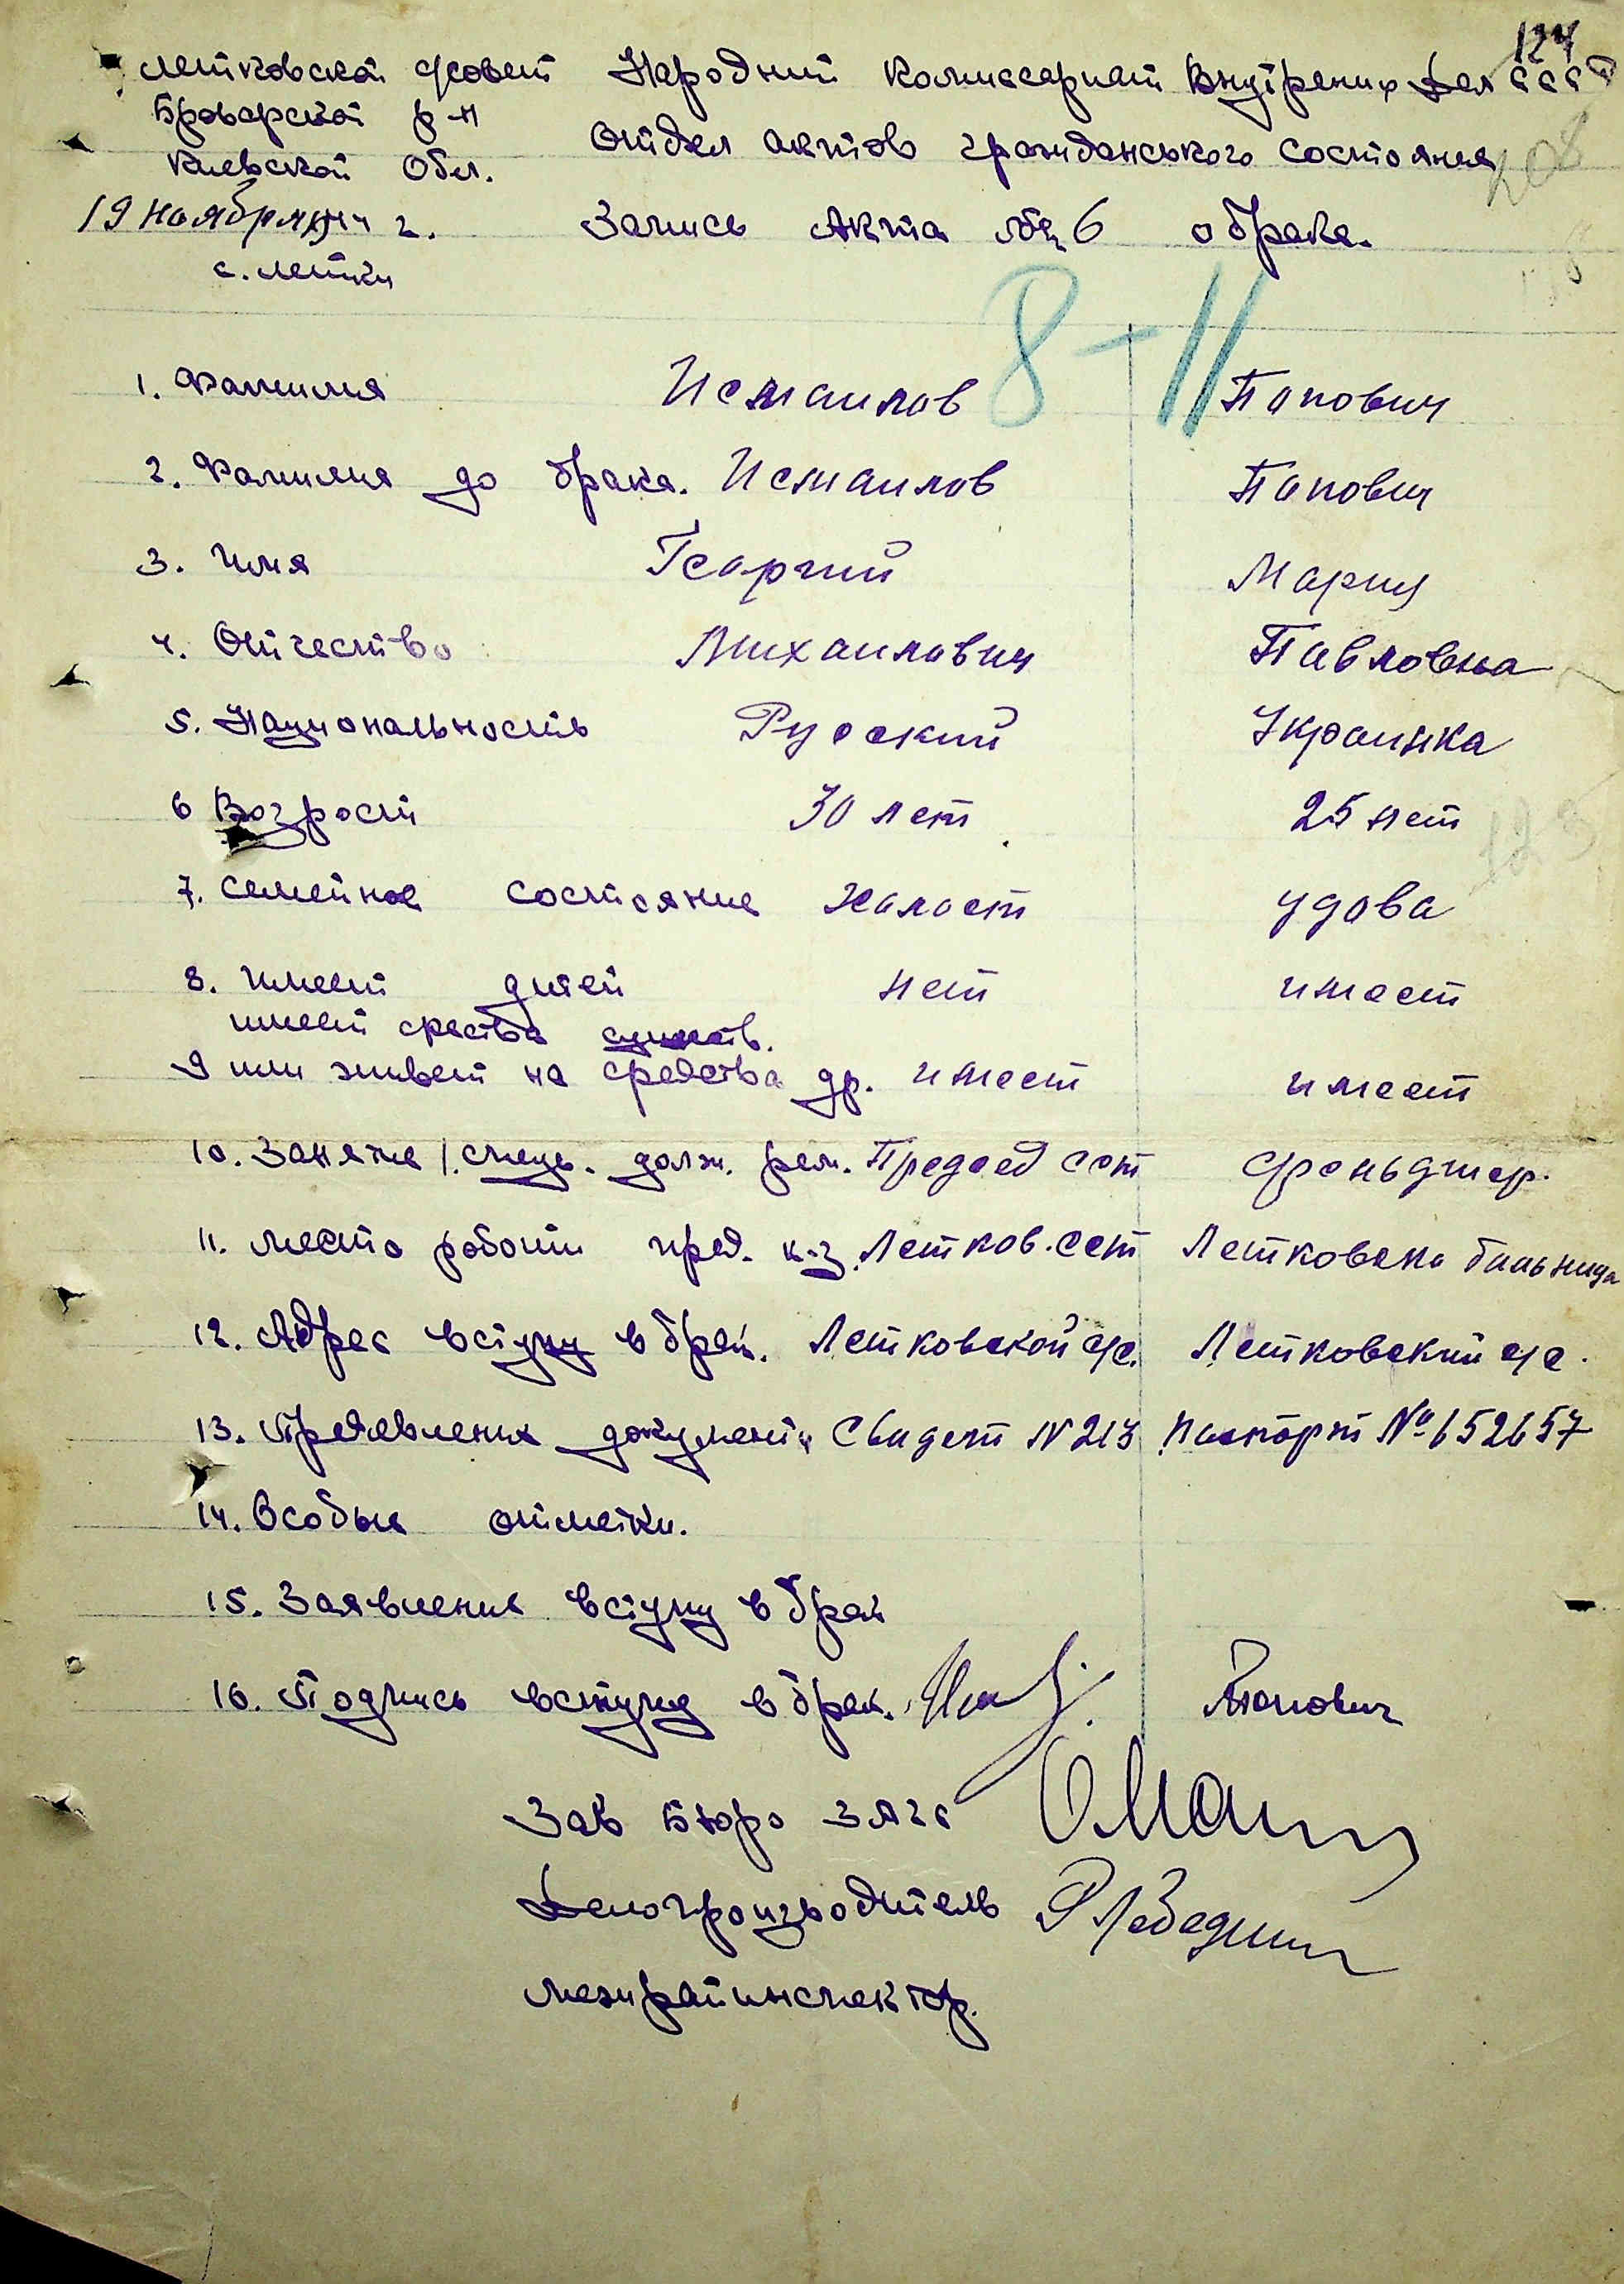 124
Летковской с/совет Народний Комиссариат Внутрених Дел СССР
Броварской р-н
Отдел актов гражданського состояния
Киевской Обл.
19 ноября 1944 г. Запись Акта № 6 о браке.
с. Летки
8-11
1. Фамилия Исмаилов Попович
2. Фамилия до брака. Исмаилов Попович
3. Имя Георгий Мария
4. Отчество Михаилович Павловна
5. Национальность Руский Украинка
6 Возрост 30 лет 25 лет
7. Семейное состояние Холост удова
8. Имеет дитей нет имеет
имеет средства существ.
9 или живет на средства др. имеет имеет
10. Занятие /. специ. долж. рем. Председ сст фельдшер.
11. Место роботи пред. к-з. Летков. сст Летковска больница
12. Адрес вступу в брак. Летковской с/с. Летковский с/с.
13. Предевления документи Свидет N 213 Паспорт № 652657
14. Особые отметки.
15. Заявления вступу в брак
16. Подпись вступу в брак. Попович
Зав Бюро ЗАГС
Делопроизводитель
Межрайинспектор.